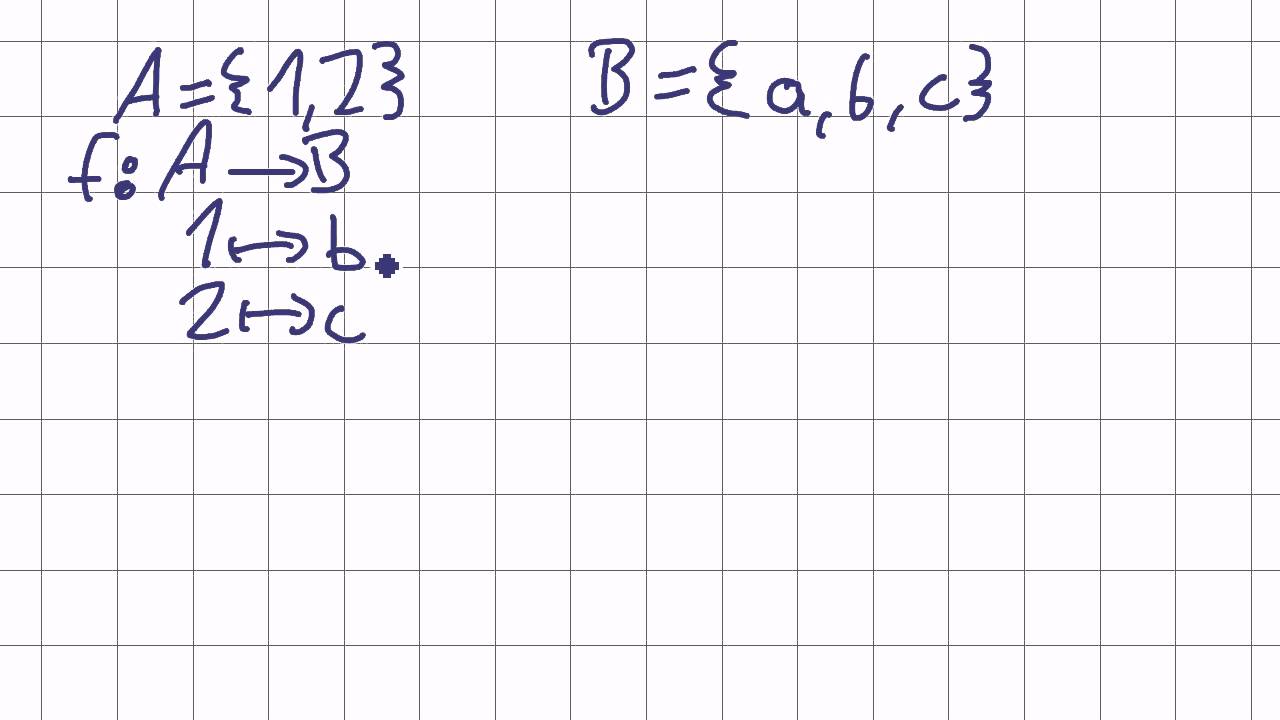 A = {1,2} B = {a, b, c}
f: A → B
1 ↦ b
2 ↦ c